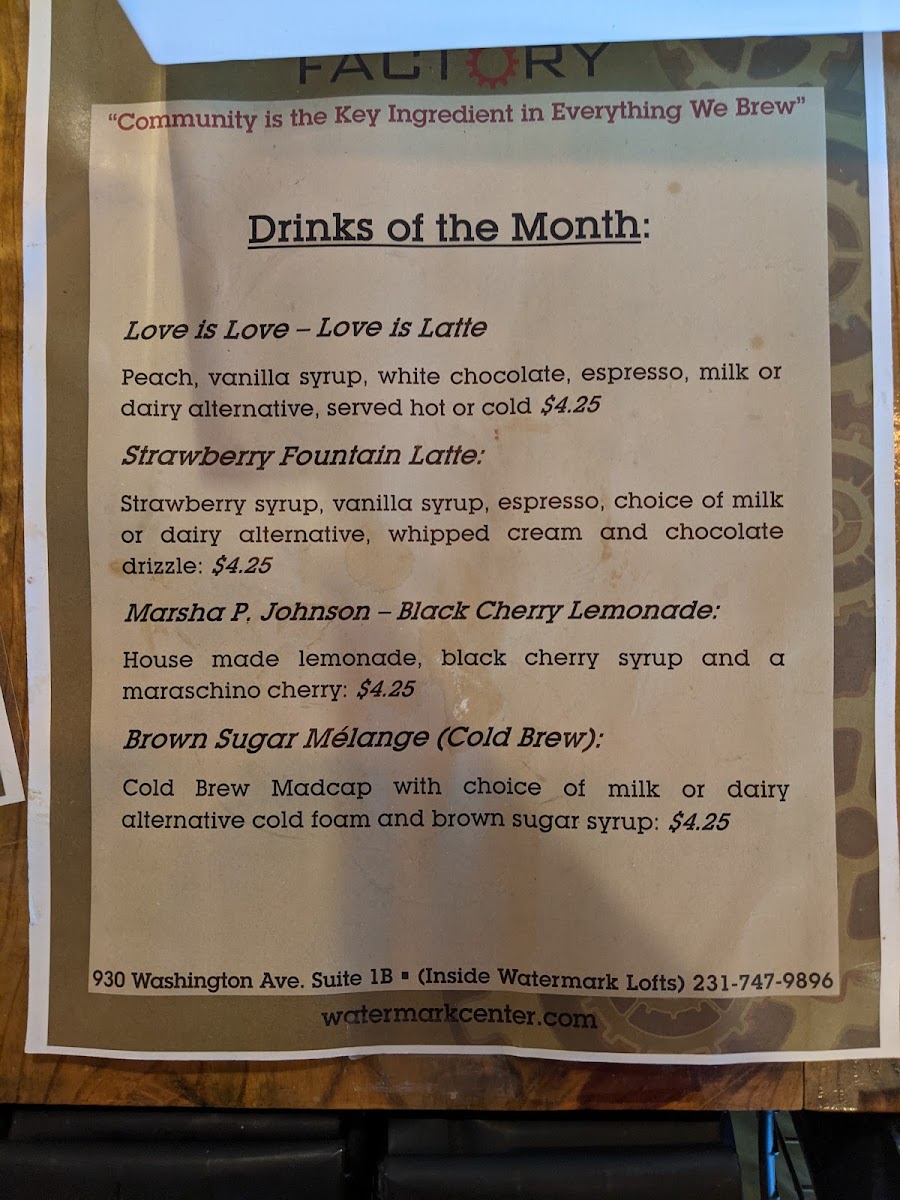 FACTORY
“Community is the Key Ingredient in Everything We Brew”
Drinks of the Month:
Love is Love – Love is Latte
Peach, vanilla syrup, white chocolate, espresso, milk or
dairy alternative, served hot or cold $4.25
Strawberry Fountain Latte:
Strawberry syrup, vanilla syrup, espresso, choice of milk
or dairy alternative, whipped cream and chocolate
drizzle: $4.25
Marsha P. Johnson – Black Cherry Lemonade:
House made lemonade, black cherry syrup and a
maraschino cherry: $4.25
Brown Sugar Mélange (Cold Brew):
Cold Brew Madcap with choice of milk or dairy
alternative cold foam and brown sugar syrup: $4.25
930 Washington Ave. Suite 1B ▪ (Inside Watermark Lofts) 231-747-9896
watermarkcenter.com